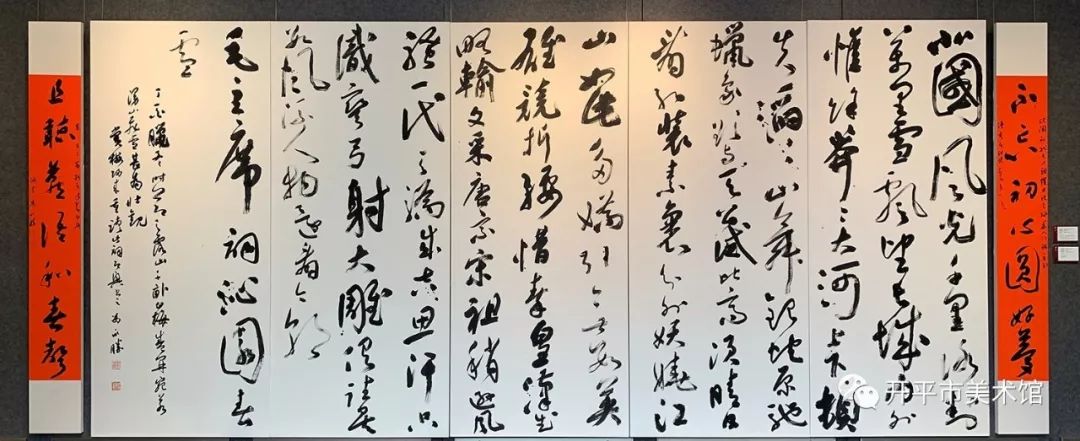 不忘初心圆好梦
北國风光千里冰封
萬里雪飘望长城内外
惟馀莽莽大河上下頓
失滔滔山舞银蛇原驰
蠟象欲与天公试比高须晴日
看红装素裹分外妖娆江
山如此多嬌引无数英
雄競折腰惜秦皇漢武
略輸文采唐宗宋祖稍遜風
骚一代天骄成吉思汗只
識弯弓射大雕俱往矣
数风流人物还看今朝
毛主席词沁園春
雪
且聽燕語和春聲
开平市美术馆